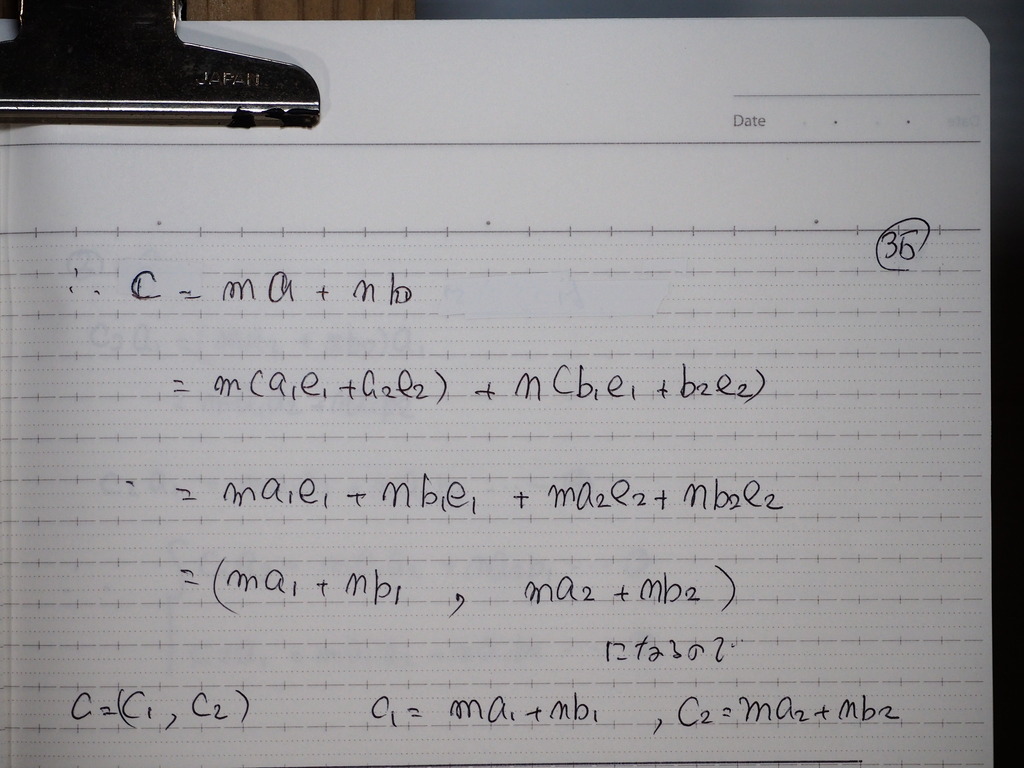 JAPAN
Date
36
∴ C = ma + nb
= m(a₁e₁ + a₂e₂) + n(b₁e₁ + b₂e₂)
= ma₁e₁ + nb₁e₁ + ma₂e₂ + nb₂e₂
= (ma₁ + nb₁ , ma₂ + nb₂)
になるので
C = (C₁ , C₂) C₁ = ma₁ + nb₁ , C₂ = ma₂ + nb₂